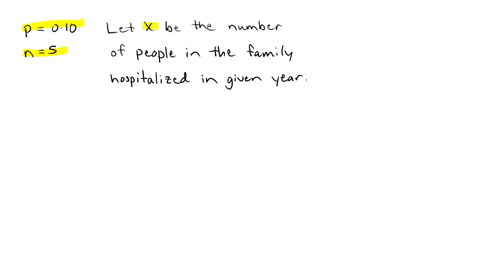 p = 0.10 Let X be the number
n = 5 of people in the family
hospitalized in given year.